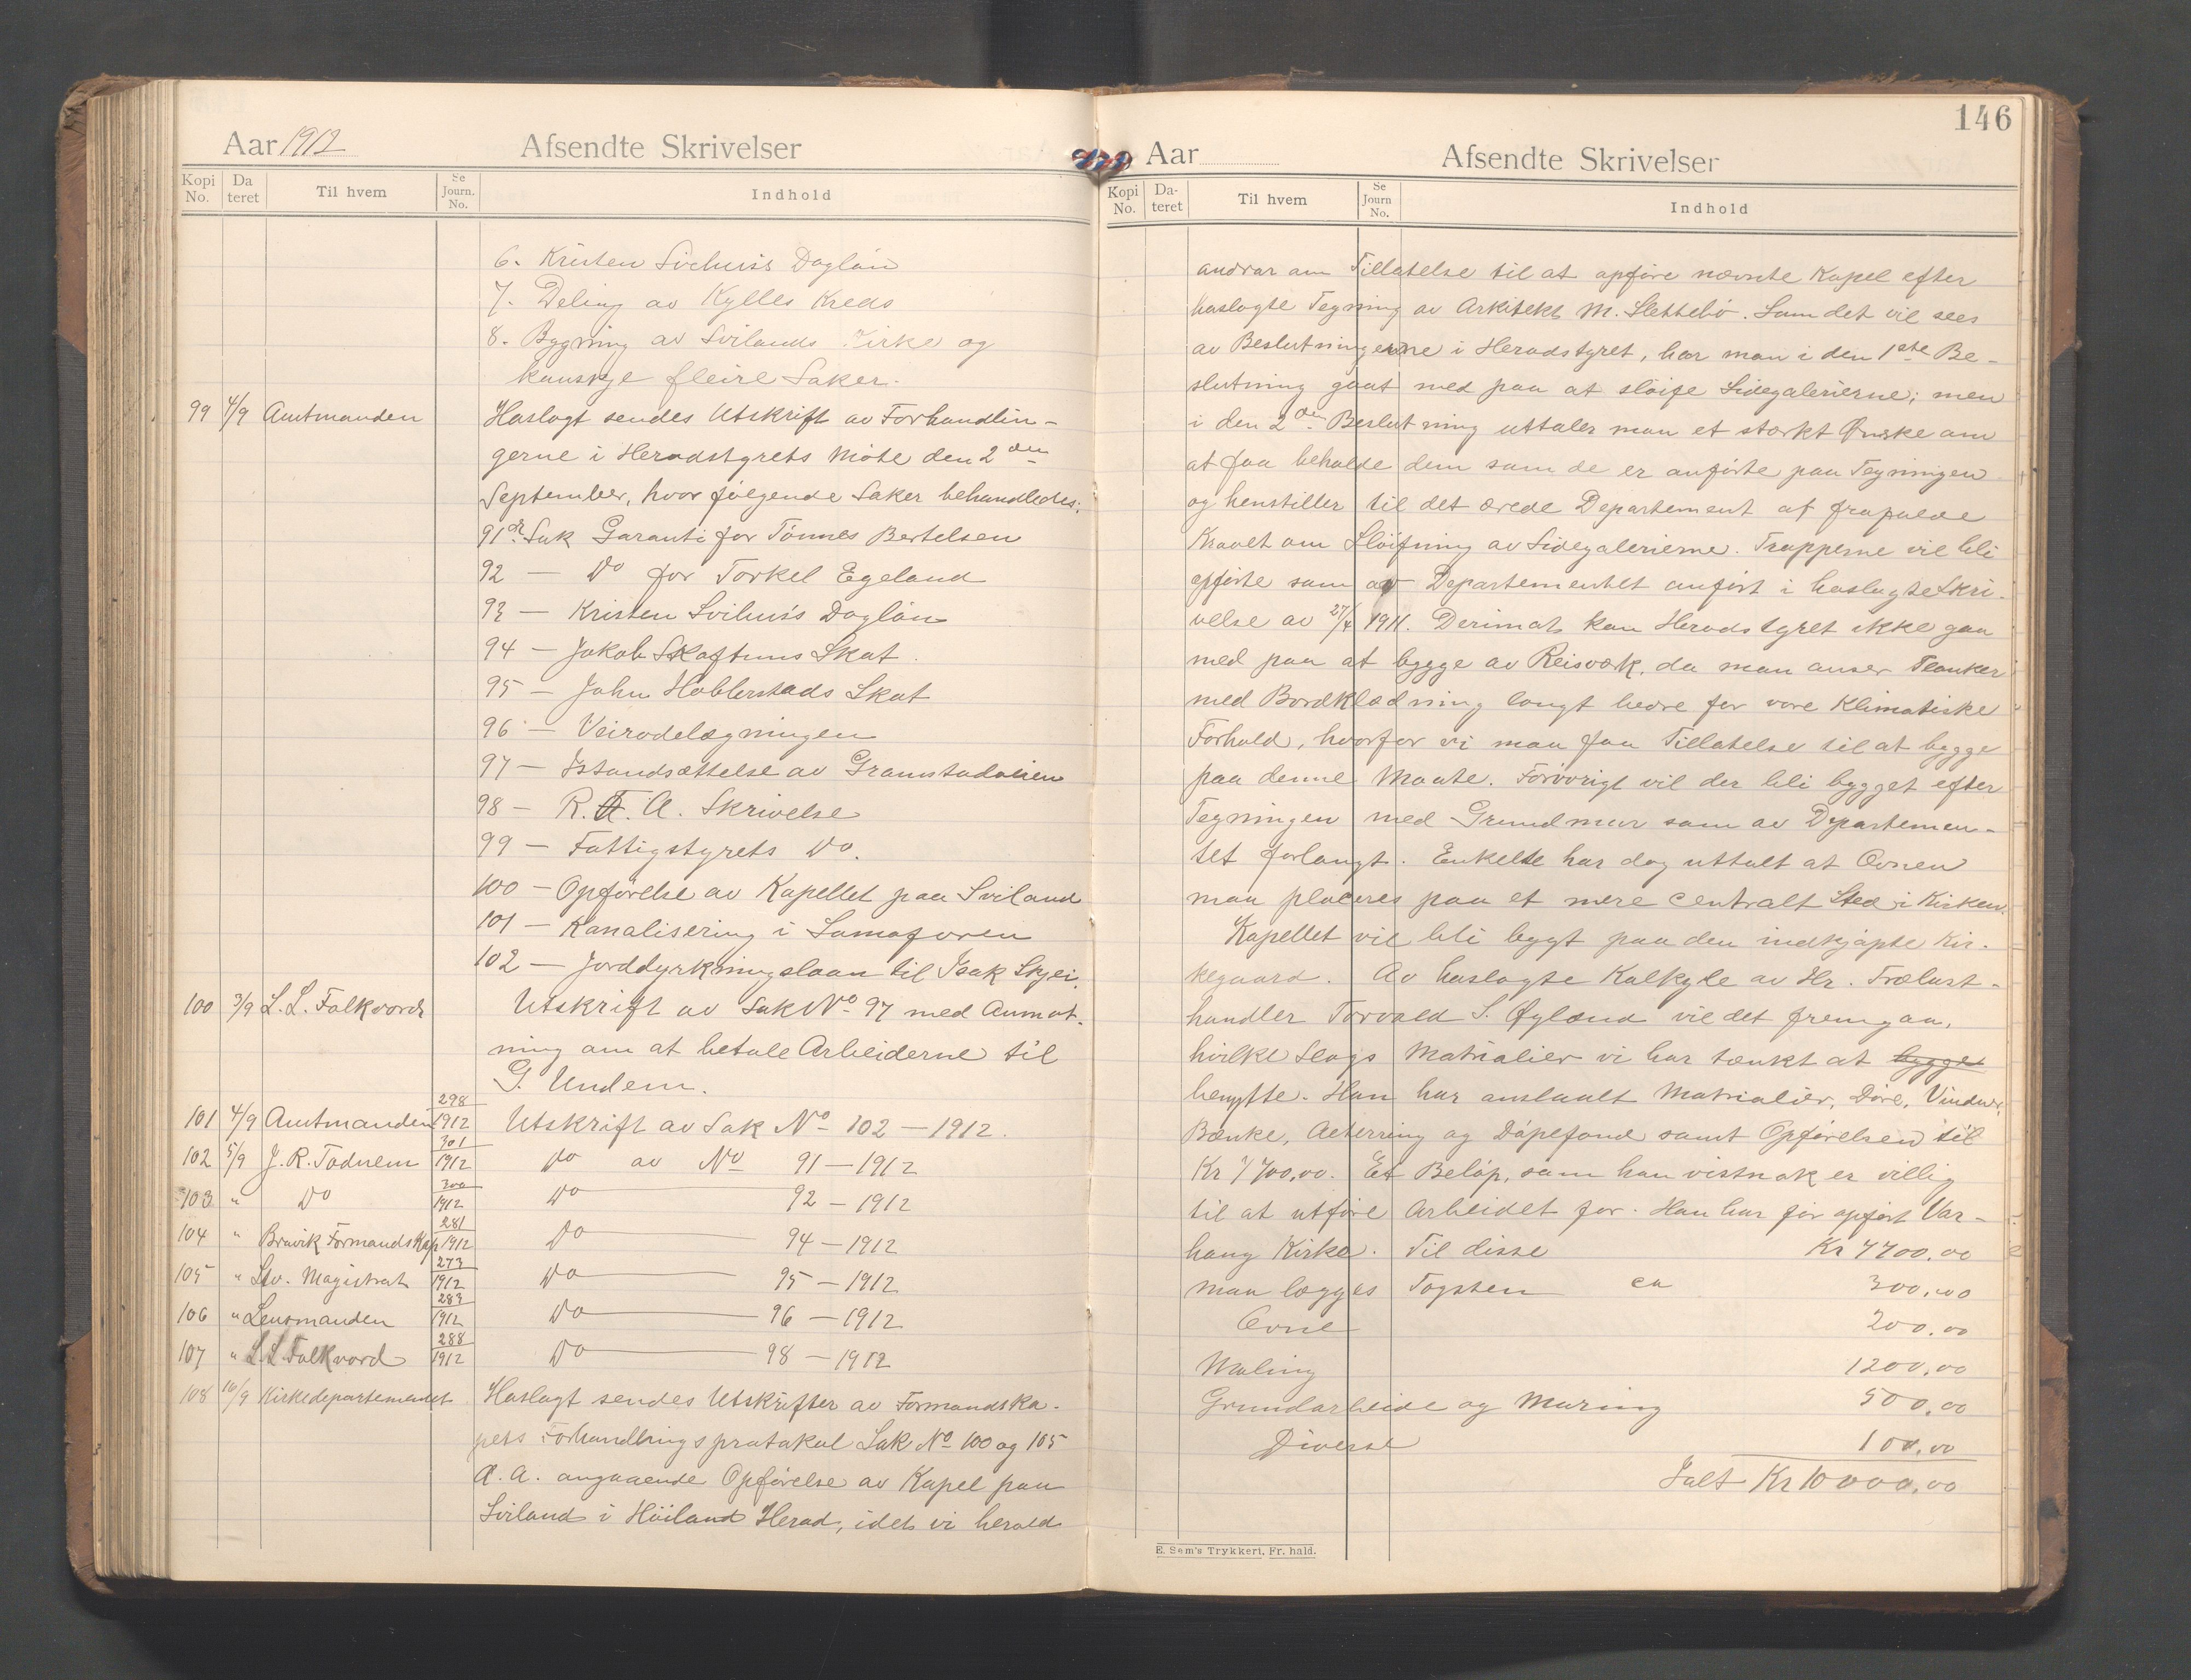 Aar 1912 Afsendte Skrivelser
Kopi No. Da teret Til hvem Se Journ. No. Indhold
6. Kristen Svihus's Dagløn
7. Deling av Kylles Kreds
8. Bygning av Svilands Kirke og
kanskje fleire Saker.
99 4/9 Amtmanden Haslagt sendes Utskrift av Forhandlin-
gerne i Heradstyrets Møte den 2den
September, hvor følgende Saker behandledes:
91de Sak Garanti for Tønnes Bertelsen
92 — Do for Torkel Egeland
93 — Kristen Svihus's Dagløn
94 — Jakob Skaftuns Skat
95 — John Hobberstads Skat
96 — Veirodelægningen
97 — Istandsættelse av
98 — R. F. A. Skrivelse
99 — Fattigstyrets Do.
100 — Opførelse av Kapellet paa Sviland
101 — Kanalisering i
102 — Jorddyrkningslaan til Isak Skjei.
100 3/9 L. L. Falkvord Utskrift av Sak No 97 med Anmot-
ning om at betale Arbeiderne til
G. Undem.
101 4/9 Amtmanden 298/1912 Utskrift av Sak No 102 — 1912.
102 5/9 J. R. Todnem 301/1912 Do av No 91 — 1912
103 " Do 300/1912 Do 92 — 1912
104 " Bruvik Formandskap 281/1912 Do 94 — 1912
105 " Stv. Magistrat 273/1912 Do 95 — 1912
106 " Lensmanden 283/1912 Do 96 — 1912
107 " L. L. Falkvord 288/1912 Do 98 — 1912
108 16/9 Kirkedepartementet Haslagt sendes Utskrifter av Formandska-
pets Forhandlingsprotokol Sak No 100 og 105
D. A. angaaende Opførelse av Kapel paa
Sviland i Høiland Herad, idet vi herved
146
Aar Afsendte Skrivelser
Kopi No. Da- teret Til hvem Se Journ No. Indhold
andrar om Tillatelse til at opføre nævnte Kapel efter
haslagte Tegning av Arkitekt M. Slettebø. Som det vil sees
av Beslutningerne i Heradstyret, har man i den 1ste Be-
slutning gaat med paa at sløife Sidegalerierne; men
i den 2den Beslutning uttaler man et stærkt Ønske om
at faa beholde dem som de er anførte paa Tegningen
og henstiller til det ærede Departement at frafalde
Kravet om Sløifning av Sidegalerierne. Trapperne vil bli
opførte som av Departementet anført i haslagte Skri-
velse av 27/4 1911. Derimot kan Heradstyret ikke gaa
med paa at bygge av Reisværk, da man anser Planker
med Bordklædning langt bedre for vore Klimatiske
Forhold, hvorfor vi maa faa Tillatelse til at bygge
paa denne Maate. Forøvrigt vil der bli bygget efter
Tegningen med Grundmur som av Departemen-
tet forlangt. Enkelte har dog uttalt at Ovnen
maa placeres paa et mere centralt Sted i Kirken.
Kapellet vil bli bygt paa den indkjøpte Kir-
kegaard. Av haslagte Kalkyle av Hr. Trælast-
handler Torvald S. Øyland vil det fremgaa,
hvilke Slags Matrialier vi har tænkt at bygge
benytte. Han har anslaalt Matrialier, Døre, Vinduer,
Bænke, Alterring og Døpefond samt Opførelsen til
Kr 7700,00. Et Beløp, som han vistnok er villig
til at utføre Arbeidet for. Han har før opført Var-
haug Kirke. Til disse Kr 7700.00
maa lægges Tagsten ca 300,00
Ovne 200.00
Maling 1200,00
Grundarbeide og Muring 500,00
Diverse 100,00
Ialt Kr 10000,00
E. Sem's Trykkeri, Fr. hald.